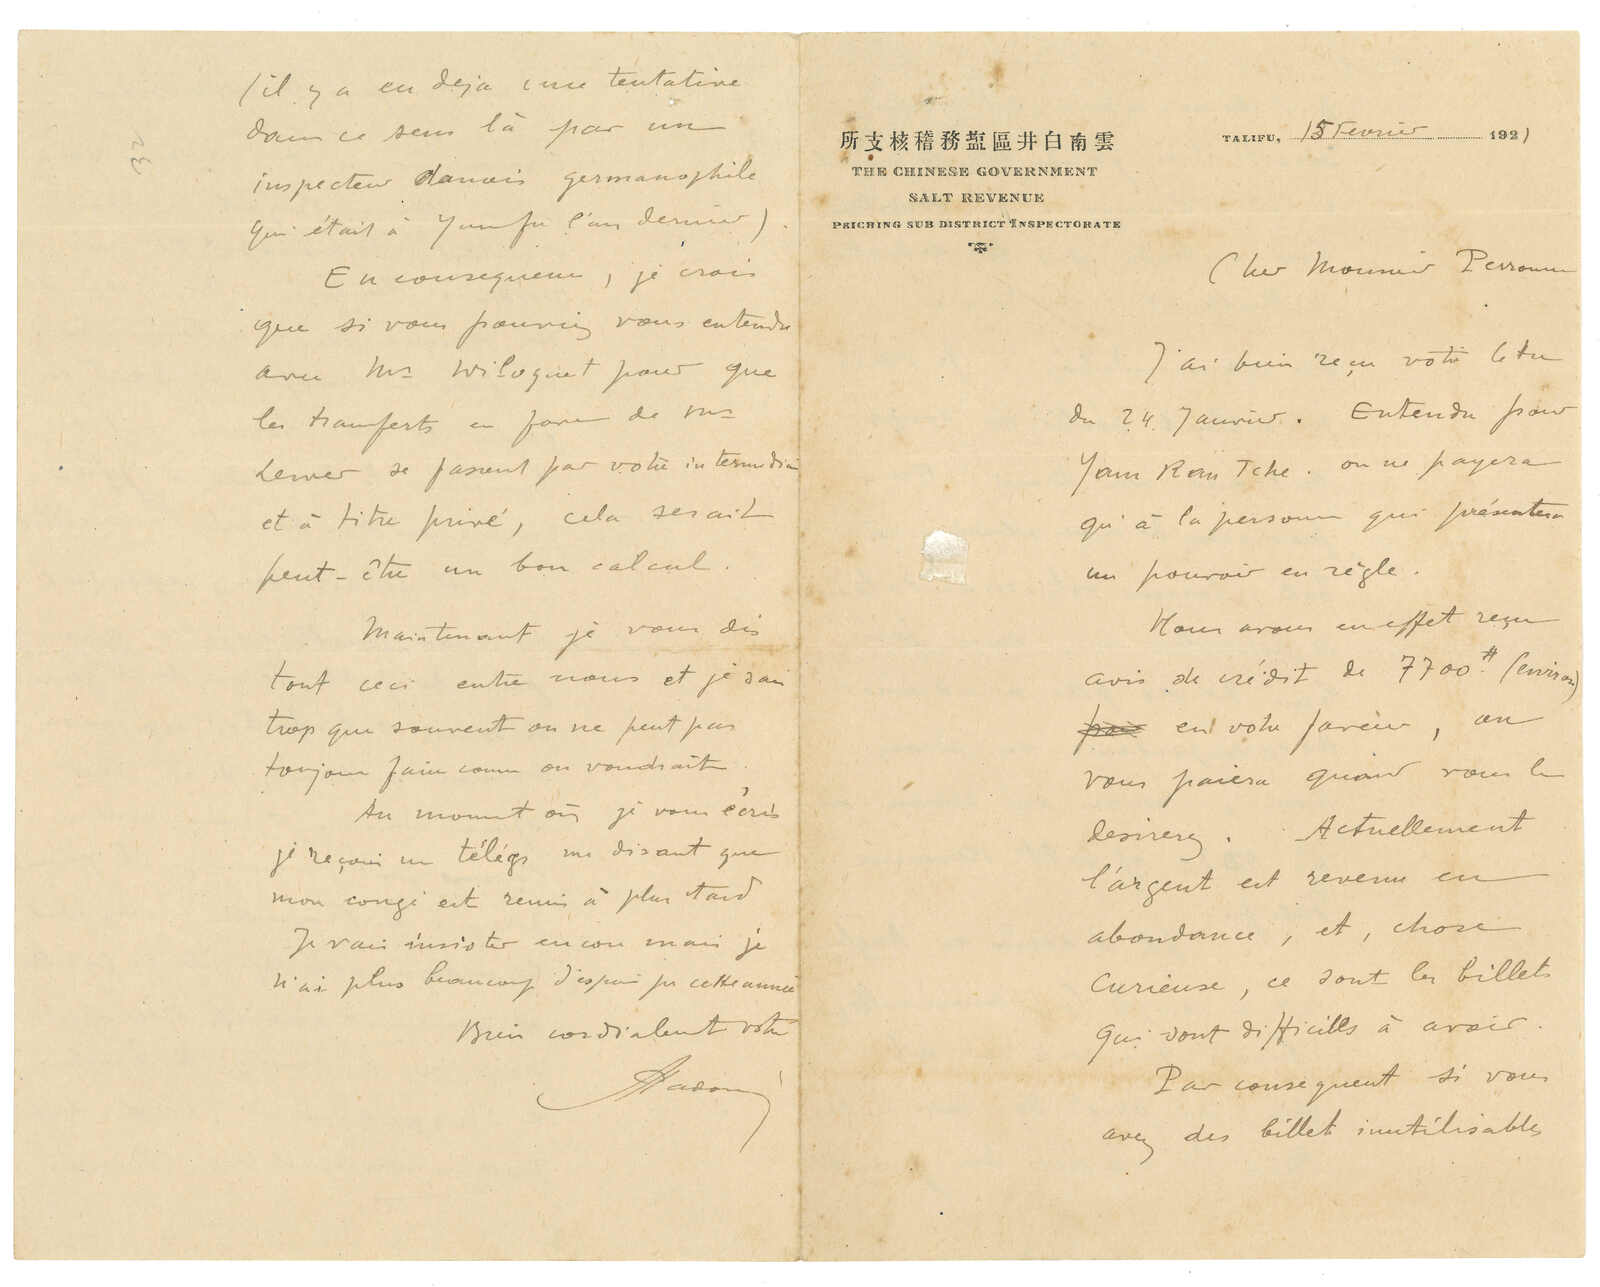 雲南白井區鹽務稽核支所
THE CHINESE GOVERNMENT
SALT REVENUE
PEICHING SUB DISTRICT INSPECTORATE
TALIFU, 15 Fevrier 1921
Cher Monsieur Perronne
J'ai bien reçu votre lettre
du 24 Janvier. Entendu pour
Yam Kan Tche. on ne payera
qu'à la personne qui présentera
un pouvoir en règle.
Nous avons en effet reçu
avis de crédit de 7700# (environ)
en votre faveur, on
vous paiera quand vous le
desirerez. Actuellement
l'argent est revenu en
abondance, et, chose
curieuse, ce sont les billets
qui sont difficiles à avoir.
Par consequent si vous
avez des billets inutilisables
(il y a eu deja une tentative
dans ce sens là par un
inspecteur danois germanophile
qui était à Yunfu l'an dernier).
En consequence, je crois
que si vous pouviez vous entendre
avec Mr Wiloquet pour que
les transferts en faveur de Mr
se fassent par votre intermediaire
et à titre privé, cela serait
peut-être un bon calcul.
Maintenant je vous dis
tout ceci entre nous et je sais
trop que souvent on ne peut pas
toujours faire comme on voudrait.
Au moment où je vous écris
je reçois un télégr me disant que
mon congé est remis à plus tard
Je vais insister encore mais je
n'ai plus beaucoup d'espoir pr cette année
Bien cordialement votre
32